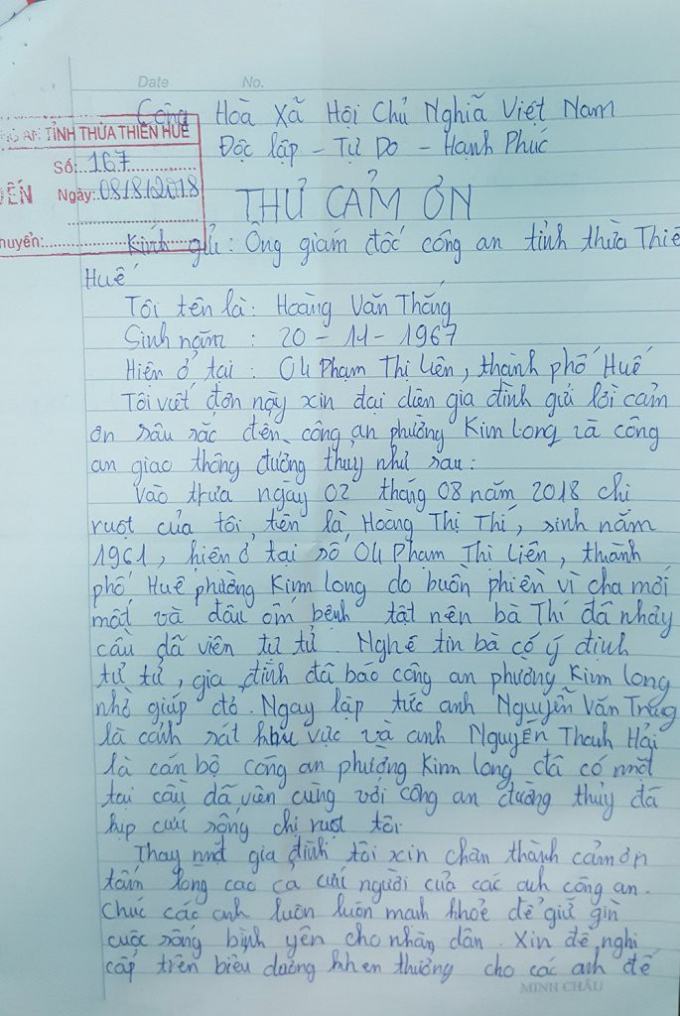 Date No.
Cộng Hoà Xã Hôi Chủ Nghiã Việt Nam
AN TỈNH THỪA THIÊN HUẾ
Độc lập - Tự Do - Hạnh Phúc
Số: 167
ĐẾN Ngày: 08/8/2018
THƯ CẢM ƠN
huyển:
Kính gửi: Ông giám đốc công an tỉnh thừa Thiê
Huế
Tôi tên là: Hoàng Văn Thắng
Sinh năm : 20 - 11 - 1967
Hiện ở tại : 04 Phạm Thị Liên, thành phố Huế
Tôi viết đơn này xin đại diện gia đình gửi lời cảm
ơn sâu sắc đến công an phường Kim Long và công
an giao thông đường thuỷ như sau:
Vào trưa ngày 02 tháng 08 năm 2018 chị
ruột của tôi tên là Hoàng Thị Thí, sinh năm
1961, hiện ở tại số 04 Phạm Thị Liên, thành
phố Huế phường Kim Long do buồn phiền vì cha mới
mất và đâu ốm bệnh tật nên bà Thí đã nhảy
cầu dã viên tự tử. Nghe tin bà có ý định
tự tử, gia đình đã báo công an phường Kim Long
nhờ giúp đỏ. Ngay lập tức anh Nguyễn Văn Trung
là cảnh sát khu vực và anh Nguyễn Thanh Hải
là cán bộ công an phường Kim long đã có mặt
tại cầu dã viên cùng với công an đường thủy đã
kịp cứu sống chị ruột tôi
Thay mặt gia đình tôi xin chân thành cảm ơn
tấm lòng cao cả cứu người của các anh công an.
Chúc các anh luôn luôn mạnh khỏe để giữ gìn
cuộc sống bình yên cho nhân dân. Xin đề nghị
cấp trên biểu dương khen thưởng cho các anh để
MINH CHÂU